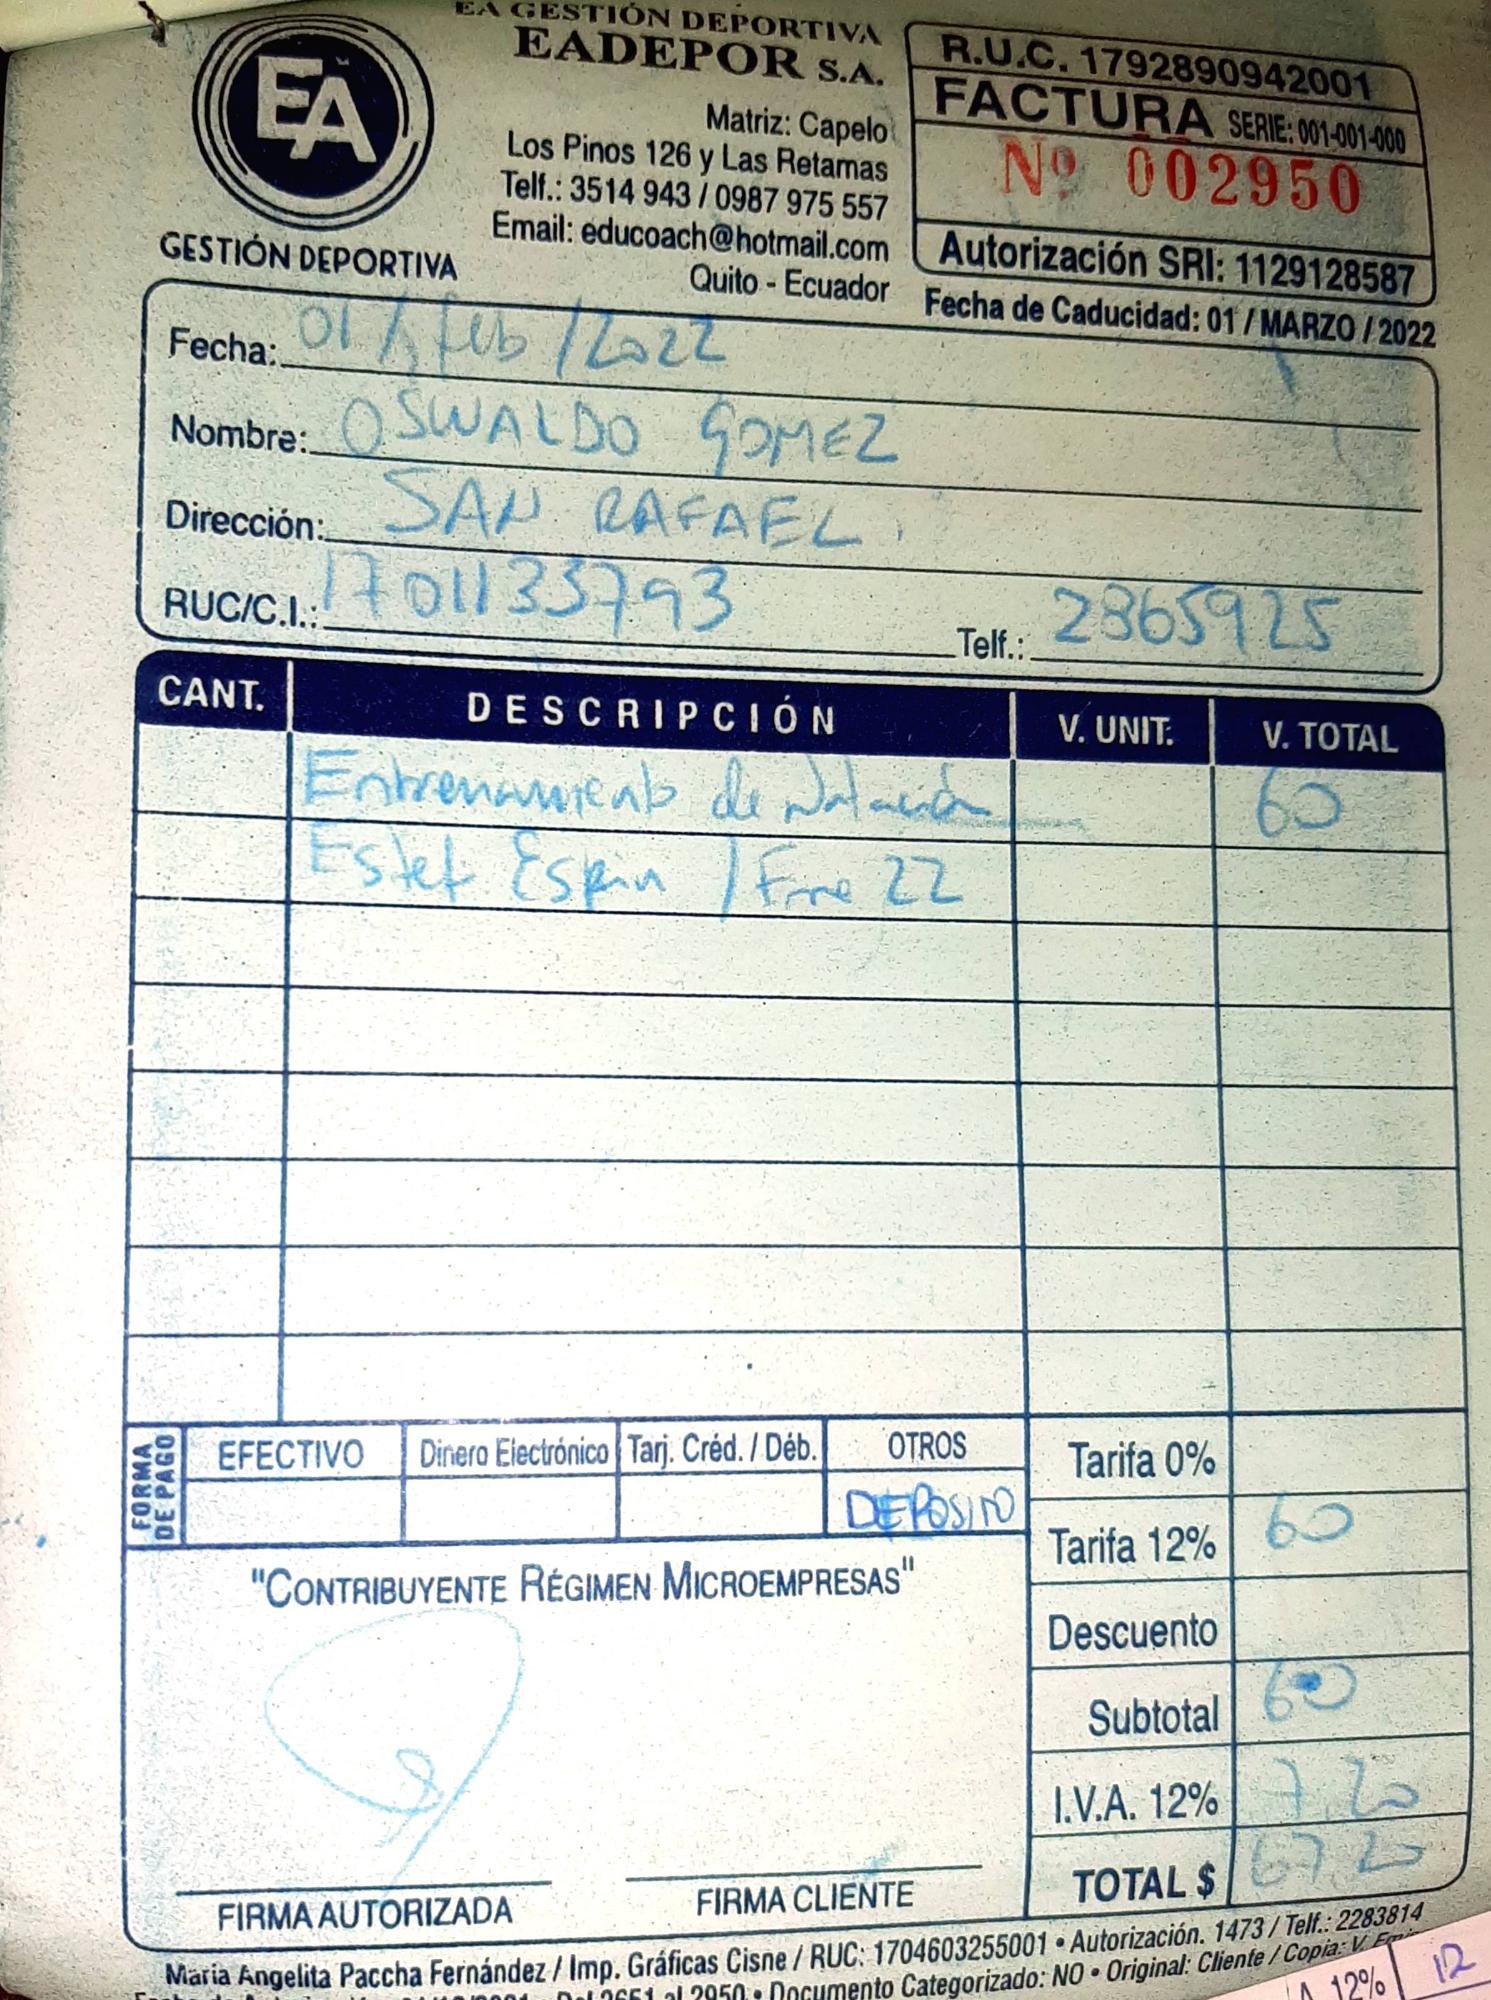 EA GESTIÓN DEPORTIVA
EADEPOR S.A.
EA
GESTIÓN DEPORTIVA
Matriz: Capelo
Los Pinos 126 y Las Retamas
Telf.: 3514 943 / 0987 975 557
Email: educoach@hotmail.com
Quito - Ecuador
R.U.C. 1792890942001
FACTURA SERIE: 001-001-000
Nº 002950
Autorización SRI: 1129128587
Fecha de Caducidad: 01 / MARZO / 2022
Fecha: 01 / feb / 2022
Nombre: OSWALDO GOMEZ
Dirección: SAN RAFAEL.
RUC/C.I.: 1701133793 Telf.: 2865925
CANT. DESCRIPCIÓN V. UNIT. V. TOTAL
Entrenamiento de Natación 60
Estef Espin / Ene 22
FORMA DE PAGO
EFECTIVO Dinero Electrónico Tarj. Créd. / Déb. OTROS
DEPOSITO
Tarifa 0%
Tarifa 12% 60
Descuento
Subtotal 60
I.V.A. 12% 7.20
TOTAL $ 67.20
"CONTRIBUYENTE RÉGIMEN MICROEMPRESAS"
FIRMA AUTORIZADA FIRMA CLIENTE
María Angelita Paccha Fernández / Imp. Gráficas Cisne / RUC: 1704603255001 • Autorización. 1473 / Telf.: 2283814
Del 2651 al 2950 • Documento Categorizado: NO • Original: Cliente / Copia: V.
12% 12